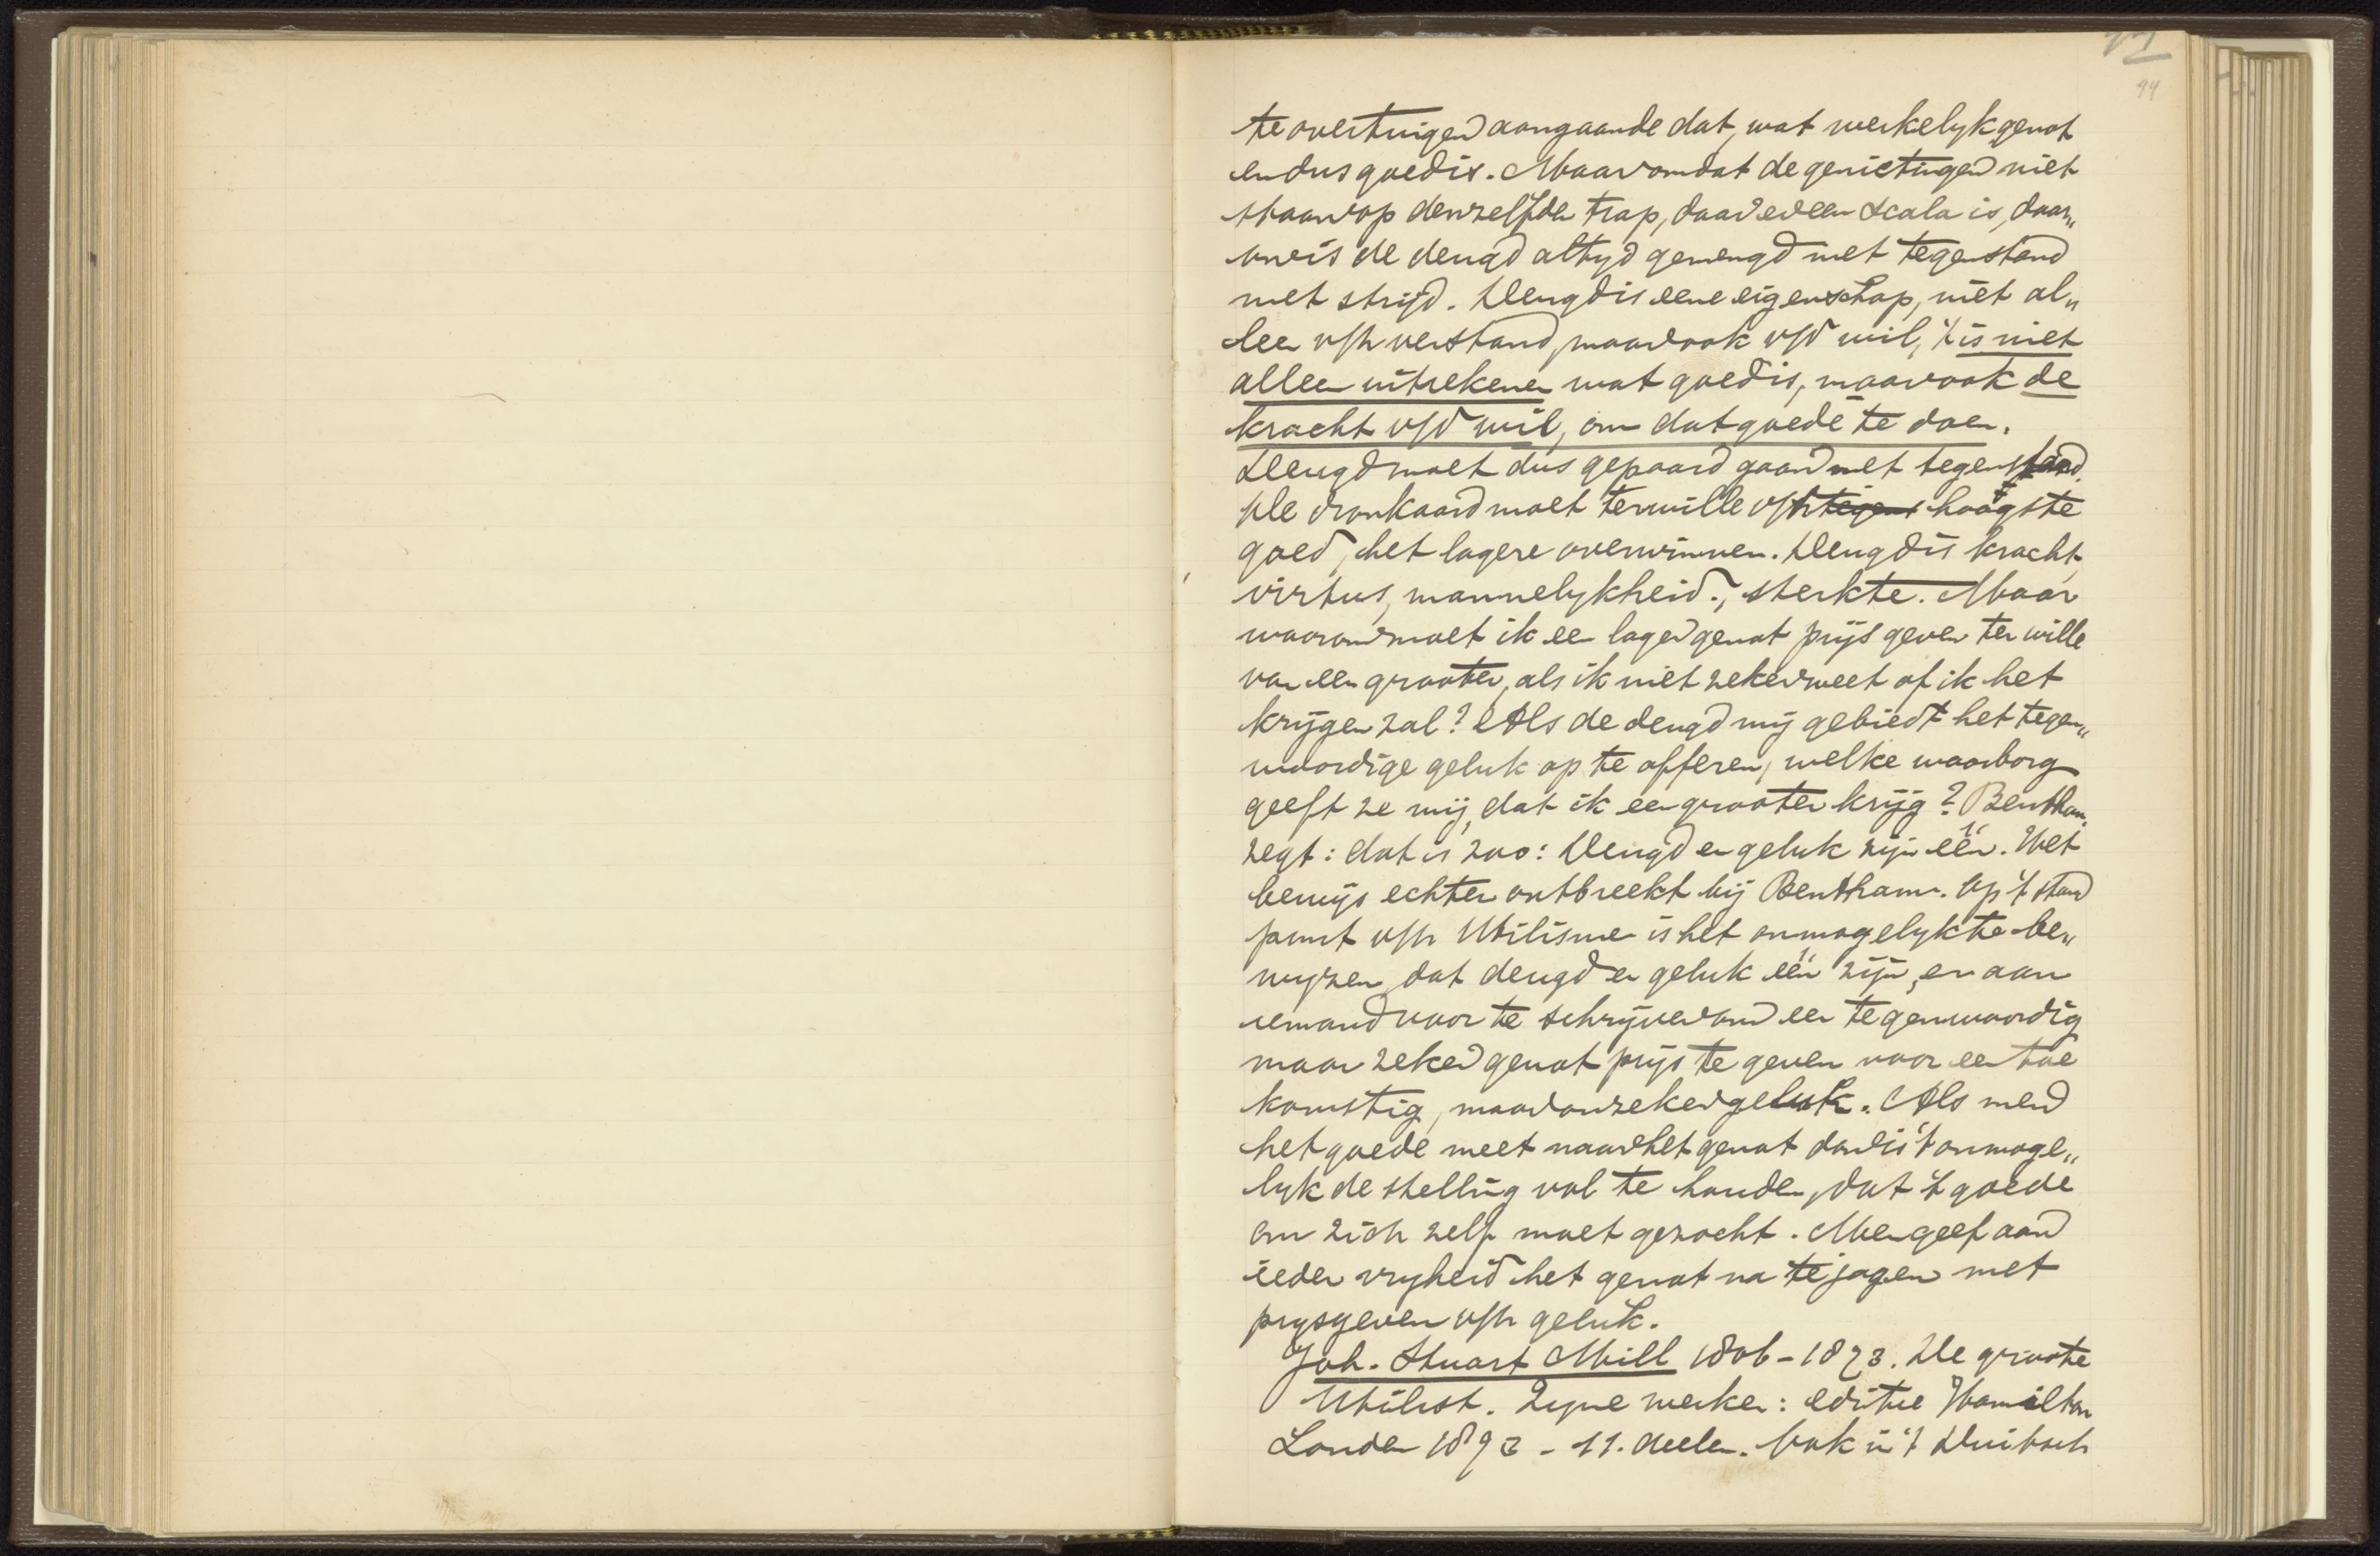 94
te overtuigen aangaande dat, wat werkelyk genot
en dus goed is. Maar omdat de genietingen niet
staan op denzelfden trap, daar er een scala is, daar„
om is de deugd altyd gemengd met tegenstand
met strijd. Deugd is eene eigenschap, niet al„
leen v/h verstand, maar ook v/d wil, 't is niet
alleen uitrekenen wat goed is, maar ook de
kracht v/d wil, om dat goede te doen.
Deugd moet dus gepaard gaan met tegenstand.
De dronkaard moet terwille v/h tegens hoogste
goed, het lagere overwinnen. Deugd is kracht,
virtus, mannelykheid, sterkte. Maar
waarom moet ik een lager genot prijs geven ter wille
van een grooter, als ik niet zeker weet of ik het
krijgen zal? Als de deugd mij gebiedt het tegen„
woordige geluk op te offeren, welke waarborg
geeft ze mij, dat ik een grooter krijg? Bentham
zegt: dat is zoo: Deugd en geluk zijn één. Het
bewijs echter ontbreekt bij Bentham. Op 't stand
punt v/h Utilisme is het onmogelyk te be„
wyzen, dat deugd en geluk één zijn, en aan
iemand voor te schrijven om een tegenwoordig
maar zeker genot prijs te geven voor een toe
komstig, maar onzeker geluk. Als men
het goede meet naar het genot dan is 't onmoge„
lyk de stelling vol te houden, dat 't goede
om zich zelf moet gezocht. Men geef aan
ieder vryheid het genot na te jagen met
prysgeven v/h geluk.
Joh. Stuart Mill 1806-1873. De groote
Utilist. Zyne werken: editie Hamilton
Londen 1873 - 11. deelen. Ook in 't Duitsch